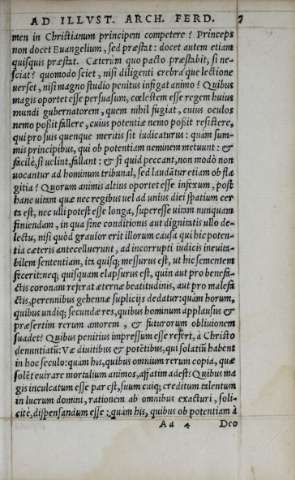 AD ILLVST. ARCH. FERD. 7
men in Christianum principem competere? Princeps
non docet Euangelium, sed præstat: docet autem etiam
quisquis præstat. Cæterùm quo pacto præstabit, si ne-
sciat? quomodo sciet, nisi diligenti crebraque lectione
verset, nisi magno studio penitus infigat animo? Quibus
magis oportet esse persuasum, cœlestem esse regem huius
mundi gubernatorem, quem nihil fugiat, cuius oculos
nemo possit fallere, cuius potentiæ nemo possit resistere,
qui pro suis quenque meritis sit iudicaturus: quàm sum-
mis principibus, qui ob potentiam neminem metuunt: &
facilè, si uelint, fallant: & si quid peccant, non modò non
uocantur ad hominum tribunal, sed laudãtur etiam ob fla
gitia? Quorum animis altius oportet esse infixum, post
hanc uitam quæ nec regibus uel ad unius diei spatium cer
ta est, nec ulli potest esse longa, superesse uitam nunquam
finiendam, in qua sine conditionis aut dignitatis ullo de-
lectu, nisi quòd grauior erit illorum causa qui hic poten-
tia cæteris antecelluerunt, ad incorrupti iudicis ineuita-
bilem sententiam, ita quisq; messurus est, ut hic sementem
fecerit: neq; quisquam elapsurus est, quin aut pro benefa-
ctis coronam referat æternæ beatitudinis, aut pro malefa
ctis, perennibus gehennæ suplicijs dedatur: quàm horum,
quibus undiq; secundæ res, quibus hominum applausus &
præsertim rerum amorem, & futurorum obliuionem
suadet? Quibus penitius impressum esse refert, à Christo
denuntiatũ: Væ diuitibus & potẽtibus, qui solatiũ habent
in hoc seculo: quàm his, quibus omnium rerum copia, quæ
solẽt euirare mortalium animos, affatim adest? Quibus ma
gis inculcatum esse par est, suum cuiq; creditum talentum
in lucrum domini, rationem ab omnibus exacturi, soli-
citè, dispensandum esse: quàm his, quibus ob potentiam à
Aa 4 Deo